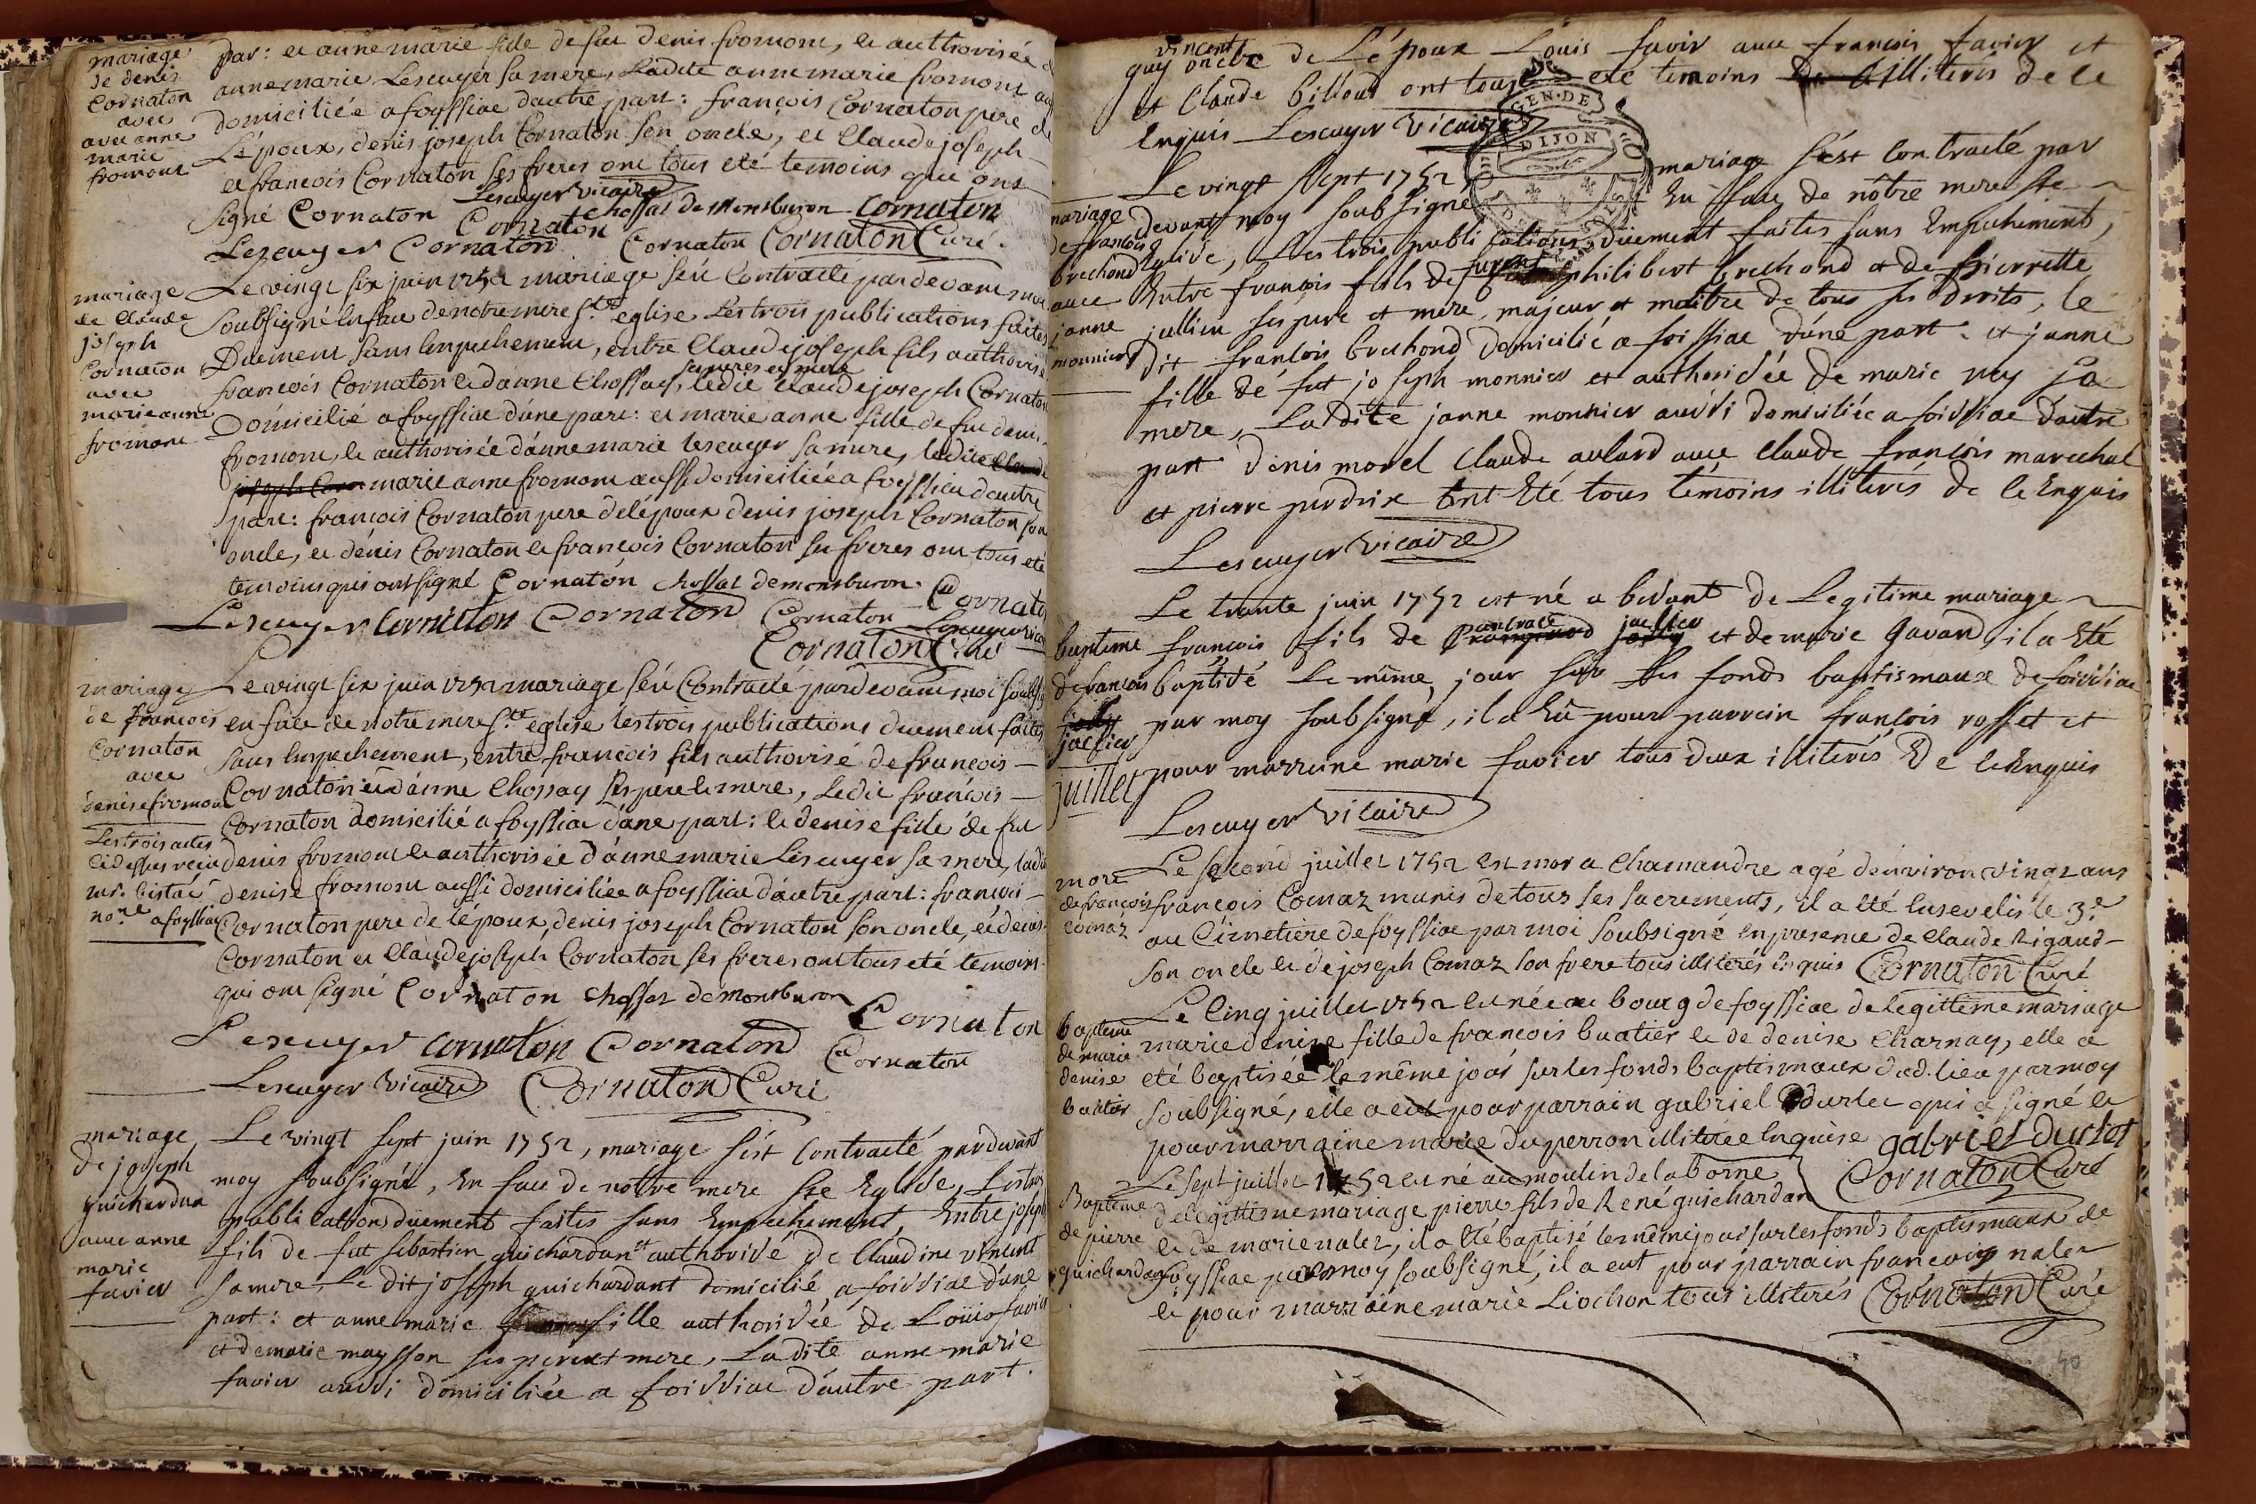 mariage
de denis
Cornaton
avec
avec anne
marie
fromont
par: et anne marie fille de feu denis fromont, et authorisée
anne marie Lescuyer sa mere, Ladite anne marie fromont
domiciliée a foyssiac dautre part: françois Cornaton pere
L'époux, denis joseph Cornaton son oncle, et Claude joseph
et francois Cornaton ses freres ont tous eté temoins qui ont
signé Cornaton Lescuyer Vicaire chossat de Montburon Cornaton
Lescuyer Cornaton Cornaton Cornaton Cornaton Curé.
mariage
de Claude
joseph
Cornaton
avec
marie anne
fromont
Le vingt six juin 1752 mariage s'est Contracté pardevant moi
soubsigné en face de notre mere ste eglise Les trois publications faites
Duement sans empechement, entre Claude joseph fils authorisé
françois Cornaton et d'anne Chossat, ses peres et mere Ledit Claude joseph Cornaton
Domicilié a foyssiac d'une part: et marie anne fille de feu denis
fromont, et authorisée d'anne marie lescuyer sa mere, ladite
marie anne fromont aussi domiciliée a foyssiac d'autre
part: françois Cornaton pere de l'époux denis joseph Cornaton son
oncle, et dénis Cornaton et françois Cornaton ses freres ont tous eté
temoins qui ont signé Cornaton chossat demontburon. Cornaton
Lescuyer Cornaton Cornaton Cornaton Lescuyer vicaire
Cornaton Curé
mariage
de françois
Cornaton
avec
denise fromont
Les trois actes
cidessus
a foyssiac
Le vingt six juin 1752 mariage s'est Contracté pardevant moi soubsi
en face de notre mere ste eglise, les trois publications duement faites
sans empechement, entre françois fils authorisé de françois
Cornaton et d'anne Chossay ses pere et mere, Ledit françois
Cornaton domicilié a foyssiac d'une part: et denise fille de feu
denis fromont et authorisée d'anne marie Lescuyer sa mere, ladite
denise fromont aussi domiciliée a foyssiac d'autre part: françois
Cornaton pere de lépoux, denis joseph Cornaton son oncle, et denis
Cornaton et Claude joseph Cornaton ses freres ont tous eté temoins
qui ont signé Cornaton chossat de Montburon
Cornaton
Lescuyer Cornaton Cornaton Cornaton
Lescuyer Vicaire Cornaton Curé
mariage
de joseph
guichardna
avec anne
marie
favier
Le vingt sept juin 1752, mariage s'est Contracté pardevant
moy soubsigné, En face de nôtre mere Ste Eglise, Les trois
publications düement faites sans Empechement, Entre joseph
fils de fut sebastien guichardan et authorisé de Claudine Vincent
sa mere, Le dit joseph guichardant domicilié a foissiac d'une
part: et anne marie fille authorisée de Loüis favier
et de marie maysson ses pere et mere, La dite anne marie
favier aussi domiciliée a foissiac d'autre part.
guy vincent oncle de L'époux Louis favir avec françois favier et
et Claude billoud ont tous eté temoins illiterés de le
Enquis Lescuyer Vicaire
GEN. DE
DIJON
mariage
de françois
brechond
avec
janne
monnier
Le vingt sept 1752 mariage s'est Contracté par
devant moy soubsigné En face de nôtre mere Ste
Eglise, Les trois publications düement faites sans Empechement,
Entre françois fils de furent philibert brechond et de pierrette
jullien ses pere et mere, majeur et maître de tous ses droits, le
dit françois brechond domicilié a foissiac d'une part: et janne
fille de fut joseph monnier et authorisée de marie ruy sa
mere, La dite janne monnier aussi domiciliée a foissiac d'autre
part denis morel Claude aulard avec Claude françois marechal
et pierre perdrix ont Eté tous témoins illiterés de le Enquis
Lescuyer Vicaire
baptême
de françois
jaclier
Le trante juin 1752 est né a bévant de Legitime mariage
françois fils de jaclier et de marie Gavand, il a Eté
baptisé Le même jour sur les fonds baptismaux de foissiac
par moy soubsigné, il a Eü pour parrein françois rosset et
pour marreine marie favier tous deux illiterés de le Enquis
Lescuyer Vicaire
juillet
mort
de françois
Comaz
Le second juillet 1752 est mor a Chamandre agé denviron vingt ans
françois Comaz munis de tous ses sacrements, il a eté ensevelis le 3e
au Cimetiere de foyssiac par moi soubsigné en presence de Claude Rigaud
son oncle et de joseph Comaz son frere tous illiterés enquis Cornaton Curé
bapteme
de marie
denise
buatier
Le Cinq juillet 1752 est née au bourg de foyssiac de legittime mariage
marie denise fille de françois buatier et de denise Charnay, elle a
eté baptisée le même jour sur les fonds baptismaux dud. lieu par moy
soubsigné, elle a eut pour parrain gabriel durlet qui a signé et
pour marraine marie duperron illiterée enquise gabriel durlet
Cornaton Curé
Bapteme
de pierre
guichardan
Le sept juillet 1752 est né au moulin de la borne
de legittime mariage pierre fils de René guichardan
et de marie nalet, il a eté baptisé le même jour sur les fonds baptismaux de
foyssiac par moy soubsigné, il a eut pour parrain francois nalet
et pour marraine marie Liochon tous illiterés Cornaton Curé
50